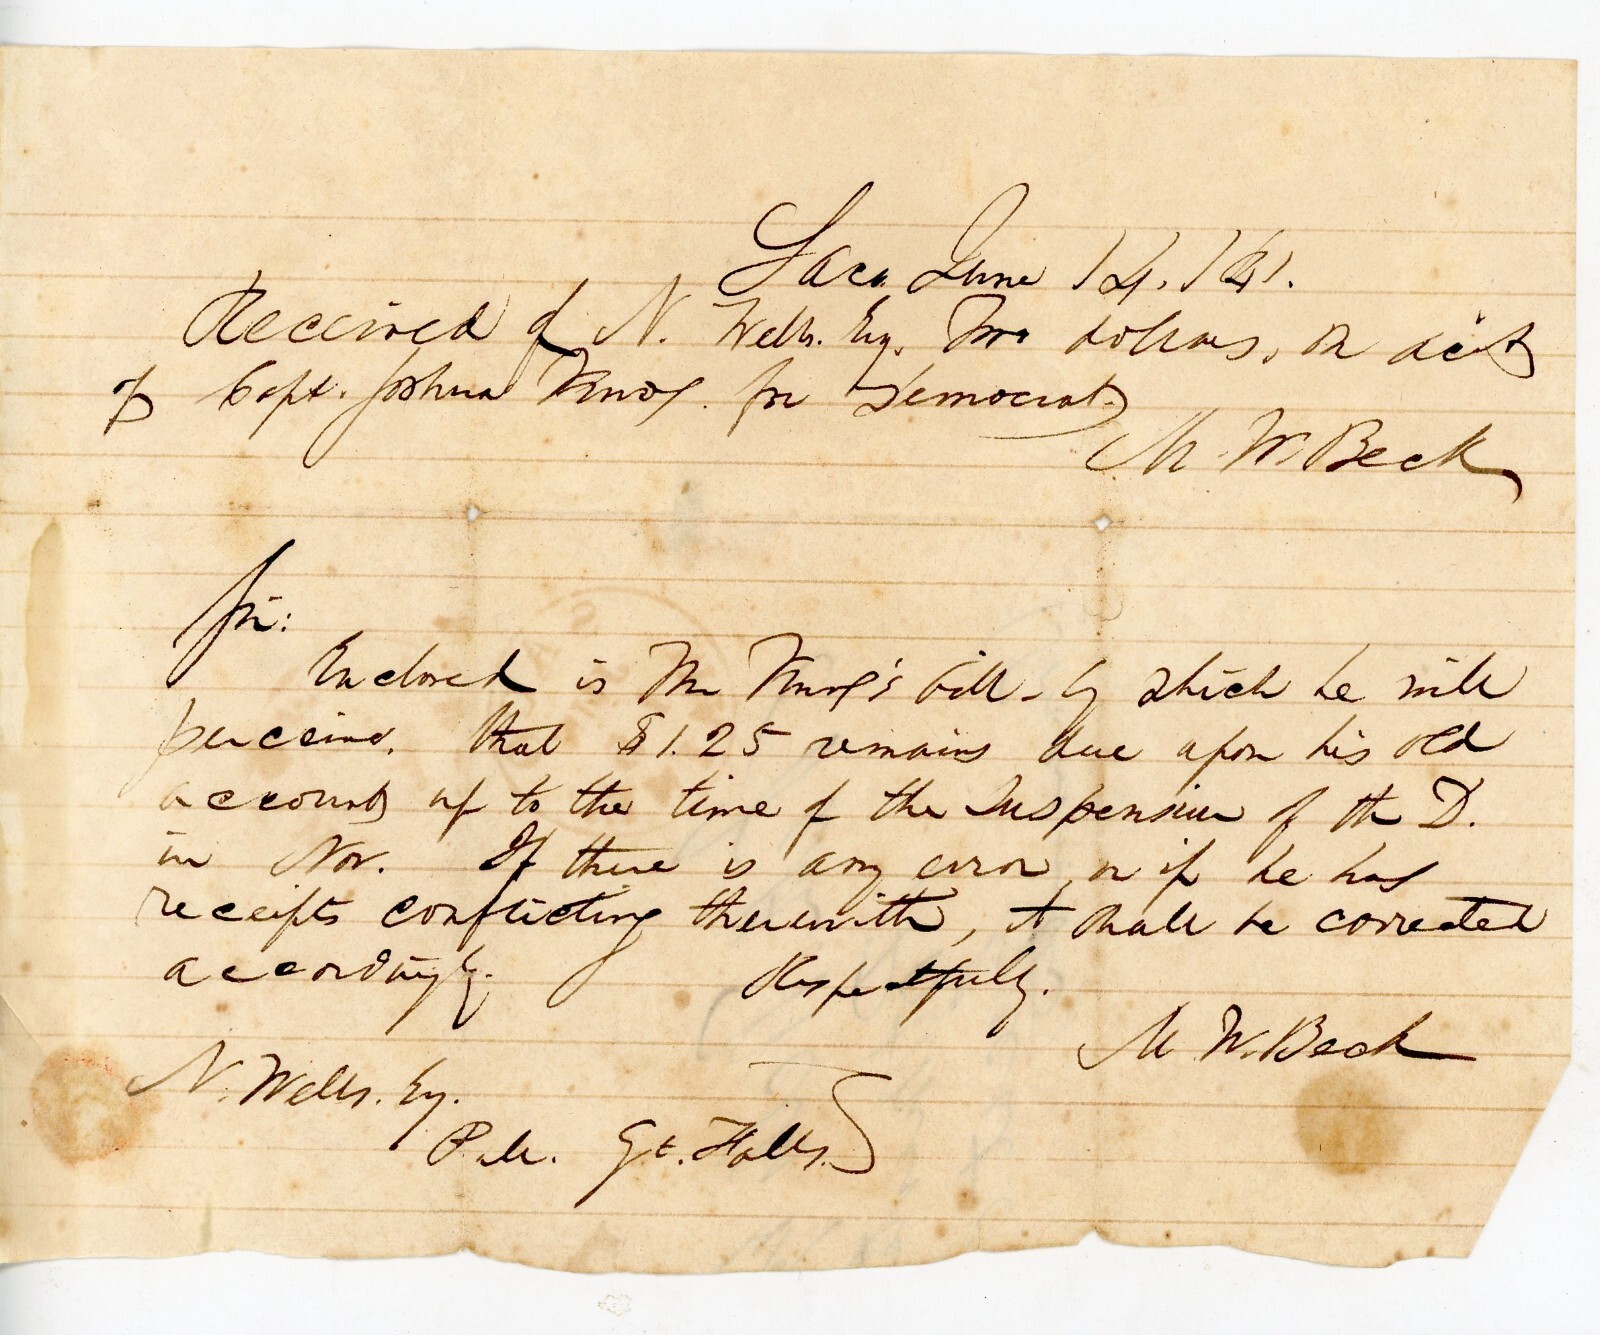 Saco June 14. 1841.
Received of N. Wells. Esq. Two dollars, on acct
of Capt. Joshua Knox. for Democrat.
M. W. Beck
Sir:
Enclosed is Mr Knox's bill - by which he will
perceive. that $1.25 remains due upon his old
account up to the time of the suspension of the D.
in Nov. If there is any error, or if he has
receipts conflicting therewith, it shall be corrected
accordingly. Respectfully.
M W. Beck
N. Wells. Esq.
P. M. Gt. Falls.